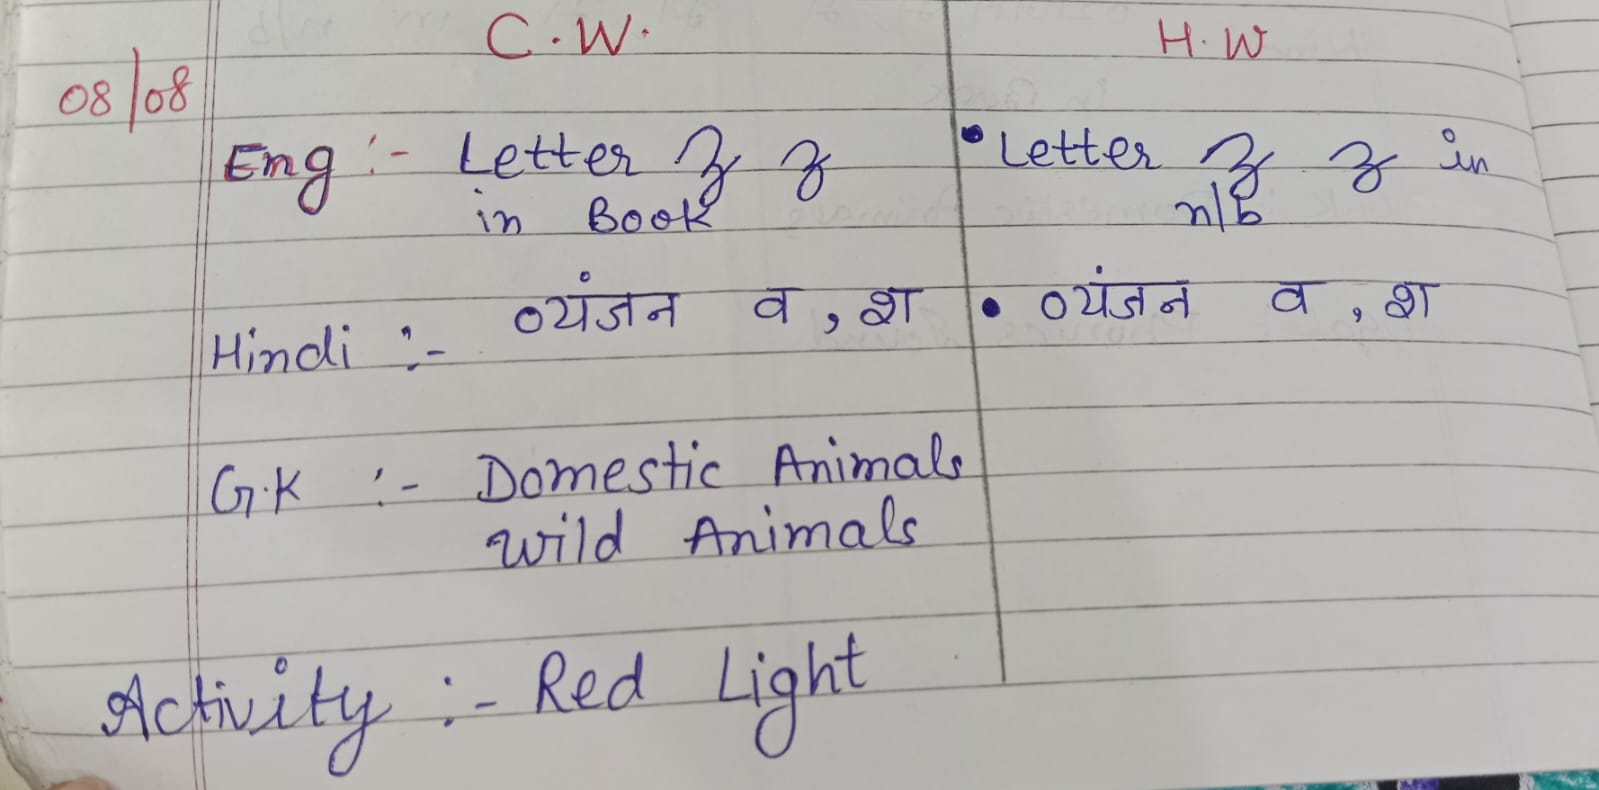 C.W. H.W
08/08
Eng :- Letter Z z • Letter Z z in
in Book n/b
Hindi :- व्यंजन व , श • व्यंजन व , श
G.K :- Domestic Animals
Wild Animals
Activity :- Red Light